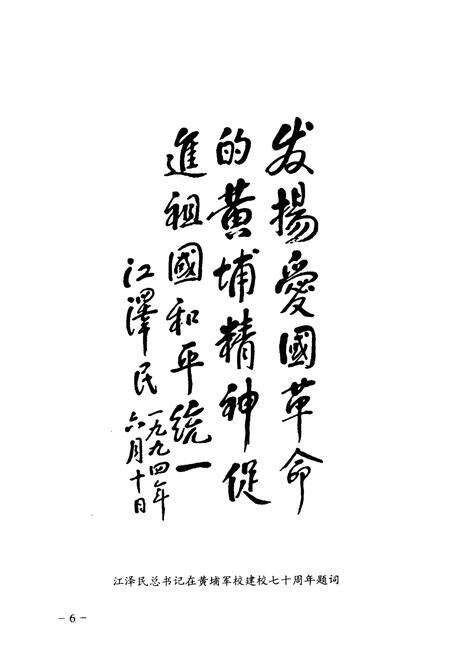 发揚愛國革命
的黄埔精神促
進祖國和平統一
江澤民
一九九四年
六月十日
江泽民总书记在黄埔军校建校七十周年题词
- 6 -